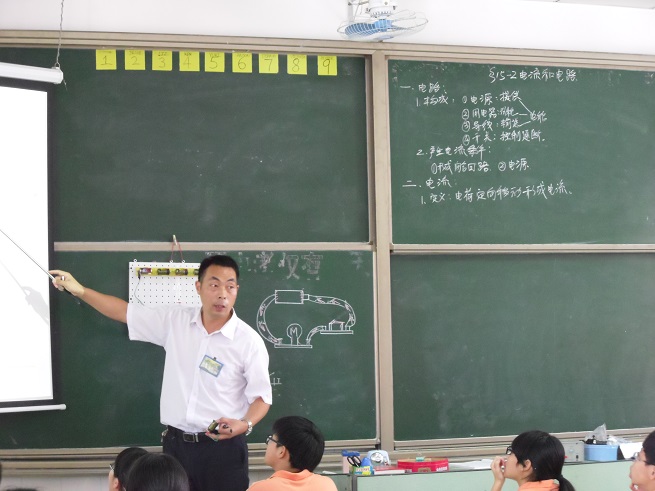 1 2 3 4 5 6 7 8 9
§15-2电流和电路
一. 电路
1. 构成: ①电源: 提供
②用电器: 消耗 电能
③导线: 输送
④开关: 控制通断.
2. 产生电流条件:
①构成闭合回路 ②电源
二. 电流
1. 定义: 电荷定向移动形成电流。
M